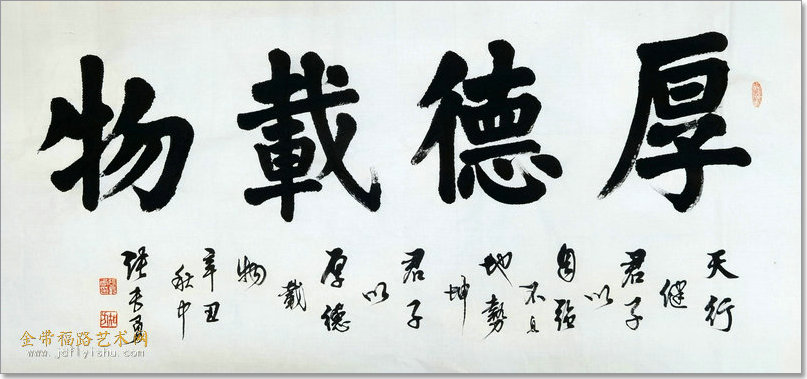 厚德載物
天行
健
君子
以
自强
不息
地勢
坤
君子
以
厚德
載
物
辛丑
秋中
金带福路艺术网
www.jdflyishu.com